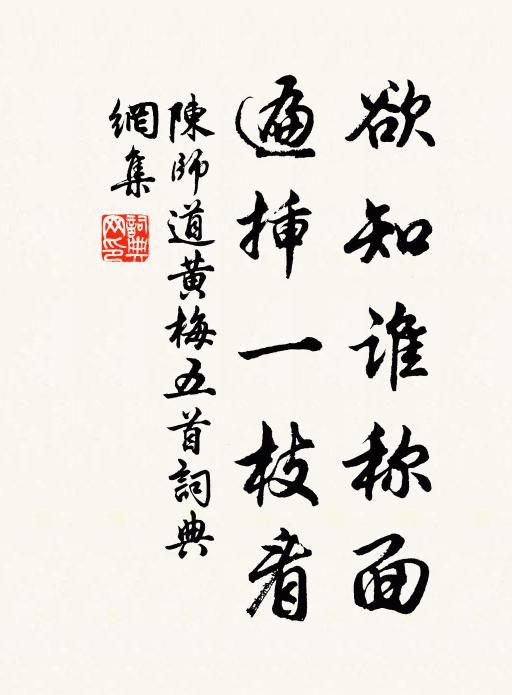 欲知谁称面
遍插一枝看
陳師道黄梅五首詞典
網集
詞典
网印